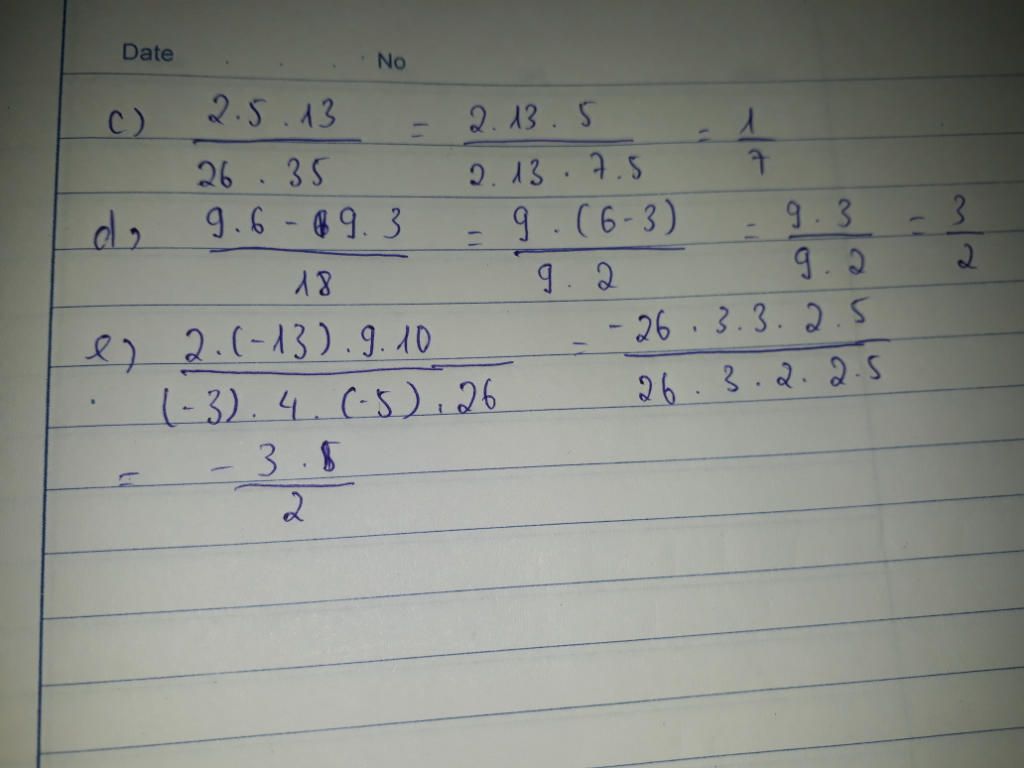 Date No
c) 2.5.13 / 26.35 = 2.13.5 / 2.13.7.5 = 1/7
d, 9.6 - 9.3 / 18 = 9.(6-3) / 9.2 = 9.3 / 9.2 = 3/2
e, 2.(-13).9.10 / (-3).4.(-5).26 = -26.3.3.2.5 / 26.3.2.2.5
= -3 / 2